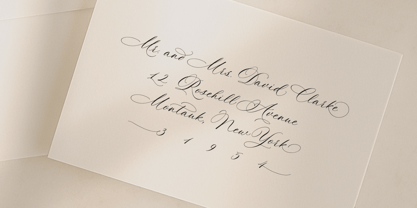 Mr and Mrs David Clarke
12 Rosehill Avenue
Montauk, New York
3 1 9 5 4